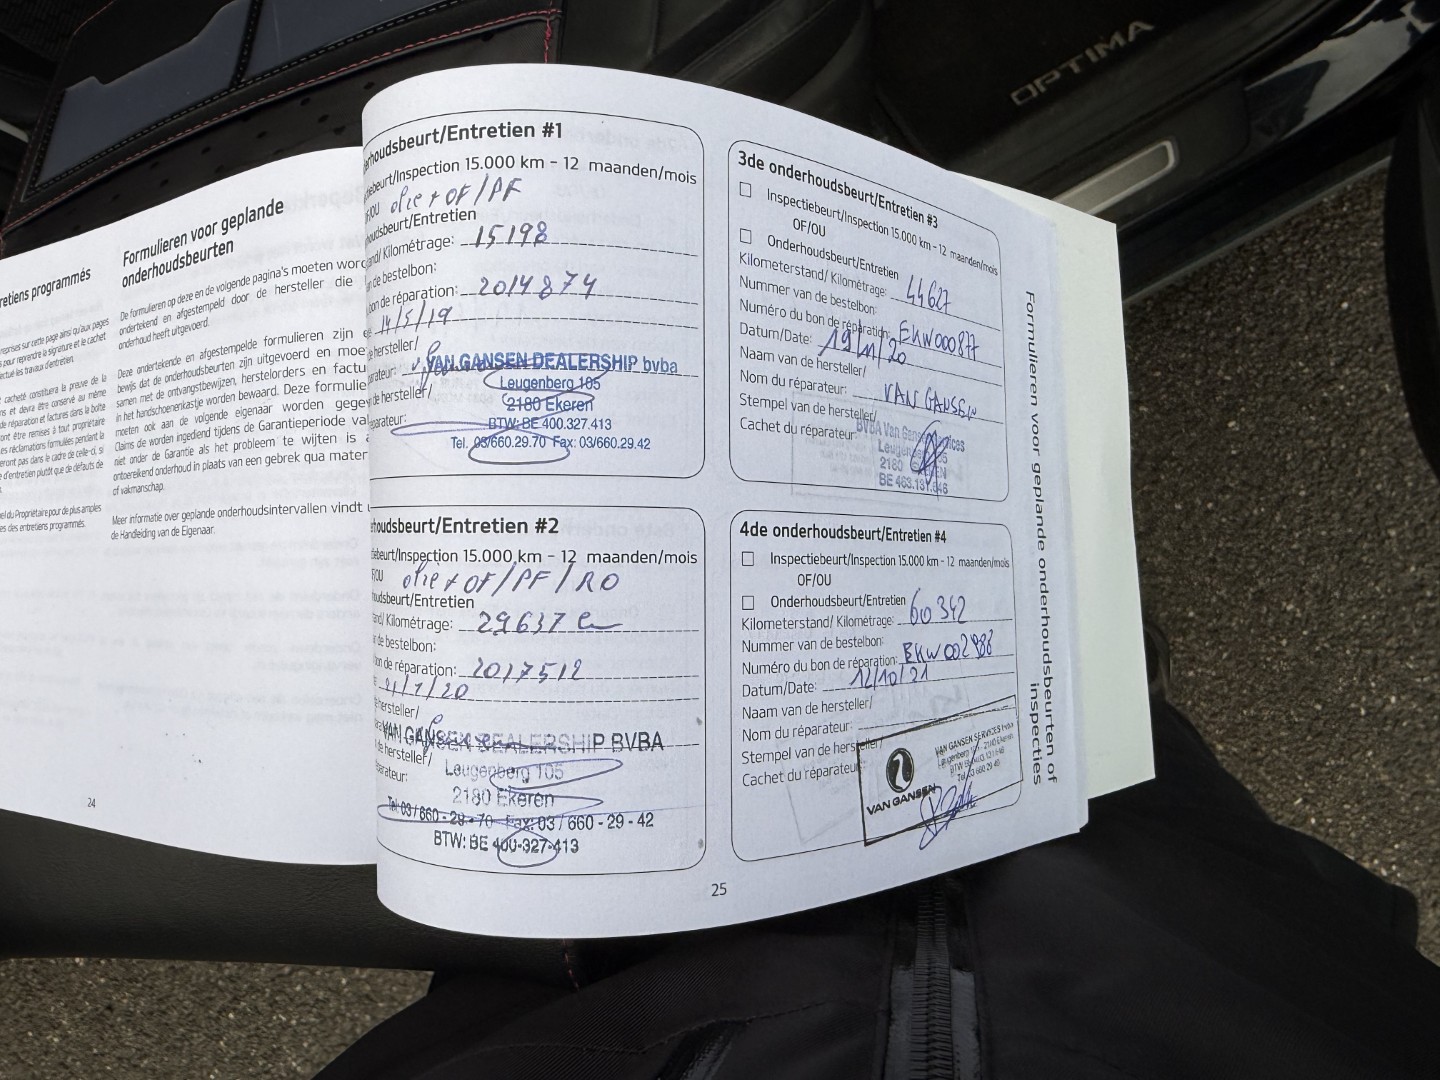 OPTIMA
retiens programmés
Formulieren voor geplande
onderhoudsbeurten
De formulieren op deze en de volgende pagina's moeten word
ondertekend en afgestempeld door de hersteller die
onderhoud heeft uitgevoerd.
Deze ondertekende en afgestempelde formulieren zijn
bewijs dat de onderhoudsbeurten zijn uitgevoerd en moe
samen met de ontvangstbewijzen, herstelorders en factu
in het handschoenenkastje worden bewaard. Deze formulie
moeten ook aan de volgende eigenaar worden gegev
Claims die worden ingediend tijdens de Garantieperiode val
niet onder de Garantie als het probleem te wijten is
ontoereikend onderhoud in plaats van een gebrek qua mater
of vakmanschap.
Meer informatie over geplande onderhoudsintervallen vindt u
de Handleiding van de Eigenaar.
24
erhoudsbeurt/Entretien #1
iebeurt/Inspection 15.000 km - 12 maanden/mois
F/OU olie + OF / PF
oudsbeurt/Entretien
and/ Kilométrage: 15198
de bestelbon:
bon de réparation: 2014874
14/5/19
hersteller/
arateur: VAN GANSEN DEALERSHIP bvba
de hersteller/ Leugenberg 105
2180 Ekeren
éparateur: BTW: BE 400.327.413
Tel. 03/660.29.70 Fax: 03/660.29.42
rhoudsbeurt/Entretien #2
tiebeurt/Inspection 15.000 km - 12 maanden/mois
F/OU olie + OF / PF / RO
oudsbeurt/Entretien
and/ Kilométrage: 29637
de bestelbon:
bon de réparation: 2017512
21/1/20
hersteller/
VAN GANSEN DEALERSHIP BVBA
de hersteller/ Leugenberg 105
parateur: 2180 Ekeren
Tel: 03/660-29-70 Fax: 03/660-29-42
BTW: BE 400-327-413
3de onderhoudsbeurt/Entretien #3
Inspectiebeurt/Inspection 15.000 km - 12 maanden/mois
OF/OU
Onderhoudsbeurt/Entretien
Kilometerstand/ Kilométrage: 44627
Nummer van de bestelbon:
Numéro du bon de réparation: EKW000877
Datum/Date: 19/11/20
Naam van de hersteller/
Nom du réparateur: VAN GANSEN
Stempel van de hersteller/
Cachet du réparateur: BVBA Van Gansen
Leugenberg
2180 EKEREN
BE 463.131.646
4de onderhoudsbeurt/Entretien #4
Inspectiebeurt/Inspection 15.000 km - 12 maanden/mois
OF/OU
Onderhoudsbeurt/Entretien
Kilometerstand/ Kilométrage: 60342
Nummer van de bestelbon:
Numéro du bon de réparation: EKW002988
Datum/Date: 12/10/21
Naam van de hersteller/
Nom du réparateur:
Stempel van de hersteller/
Cachet du réparateur
VAN GANSEN
VAN GANSEN SERVICES bvba
Tel. 03 660 29 40
Formulieren voor geplande onderhoudsbeurten of
inspecties
25